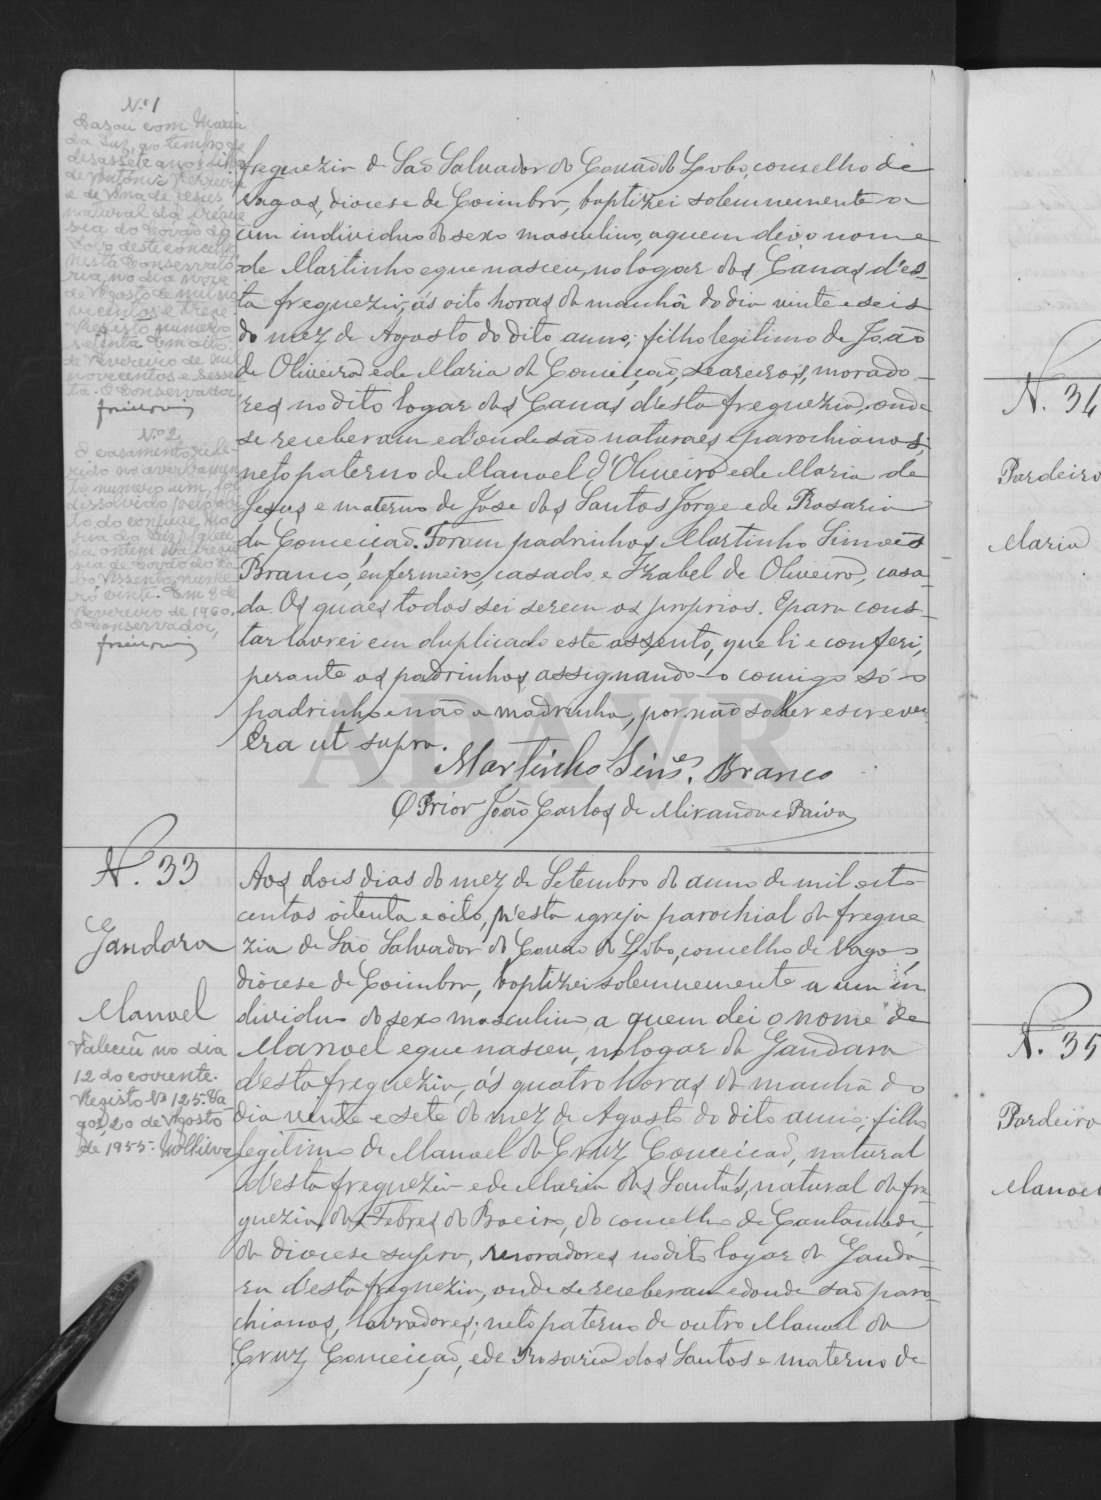 N.º 1
Casou com Maria
da Luz, ao tempo de
desassete anos, filha
de António Ferreira
e de Ana de Jesus
natural da fregue
sia do Covão do
Lobo deste concelho
nesta Conservató
ria, no dia nove
de Agosto de mil no
vecentos e treze.
Registo número
setenta. Em oito
de Fevereiro de mil
novecentos e sessen
ta. O Conservador,
N.º 2
O casamento refe
rido no averbamen
to numero um, foi
dissolvido por óbi
to do conjuge Ma
ria da Luz,
da ontem na fregue
sia de Covão do Lo
bo. Assento núme
ro vinte. Em 8 de
Fevereiro de 1960.
O Conservador,
freguezia de São Salvador do Covão do Lobo, conselho de
Vagos, diocese de Coimbra, baptizei solemnemente a
um individuo do sexo masculino, a quem dei o nome
de Martinho e que nasceu, no logar das Canas d'es-
ta freguezia, ás oito horas da manhã do dia vinte e seis
do mez de Agosto do dito anno; filho legitimo de João
de Oliveira e de Maria da Conceição, seareiros, morado-
res no dito logar das Canas d'esta freguezia, onde
se receberam e d'onde são naturaes e parochianos;
neto paterno de Manoel d'Oliveira e de Maria de
Jesus e materno de Jose dos Santos Jorge e de Rosaria
da Conceição. Foram padrinhos Martinho Simões
Branco, enfermeiro, casado e Izabel de Oliveira, casa-
da. Os quaes todos sei serem os proprios. E para cons-
tar lavrei em duplicado este assento, que li e conferi,
perante os padrinhos, assignando-o comigo só o
padrinho e não a madrinha, por não saber escrever
Era ut supra.
Martinho Sim.es Branco
O Prior João Carlos de Miranda e Paiva
N. 33
Gandara
Manoel
Faleceu no dia
12 do corrente.
Registo Nº 125. Va
gos, 20 de Agosto
de 1955.
Aos dois dias do mez de Setembro do anno de mil oito
centos oitenta e oito, n'esta igreja parochial da fregue
zia de São Salvador do Covão do Lobo, concelho de Vagos,
diocese de Coimbra, baptizei solemnemente a um in
dividuo do sexo masculino a quem dei o nome de
Manoel e que nasceu, no logar da Gandara
d'esta freguezia, ás quatro horas da manhã do
dia vinte e sete do mez de Agosto do dito anno; filho
legitimo de Manoel da Cruz Conceição, natural
d'esta freguezia e de Maria dos Santos, natural da fre
guezia das Febres do Boeiro, do concelho de Cantanhede,
da diocese supra, moradores no dito logar da Ganda-
ra d'esta freguezia, onde se receberam e d'onde são paro-
chianos, lavradores; neto paterno de outro Manoel da
Cruz Conceição, e de Rosaria dos Santos e materno de
N. 34
Pardeiro
Maria
N. 35
Pardeiro
Manoel
ADAVR